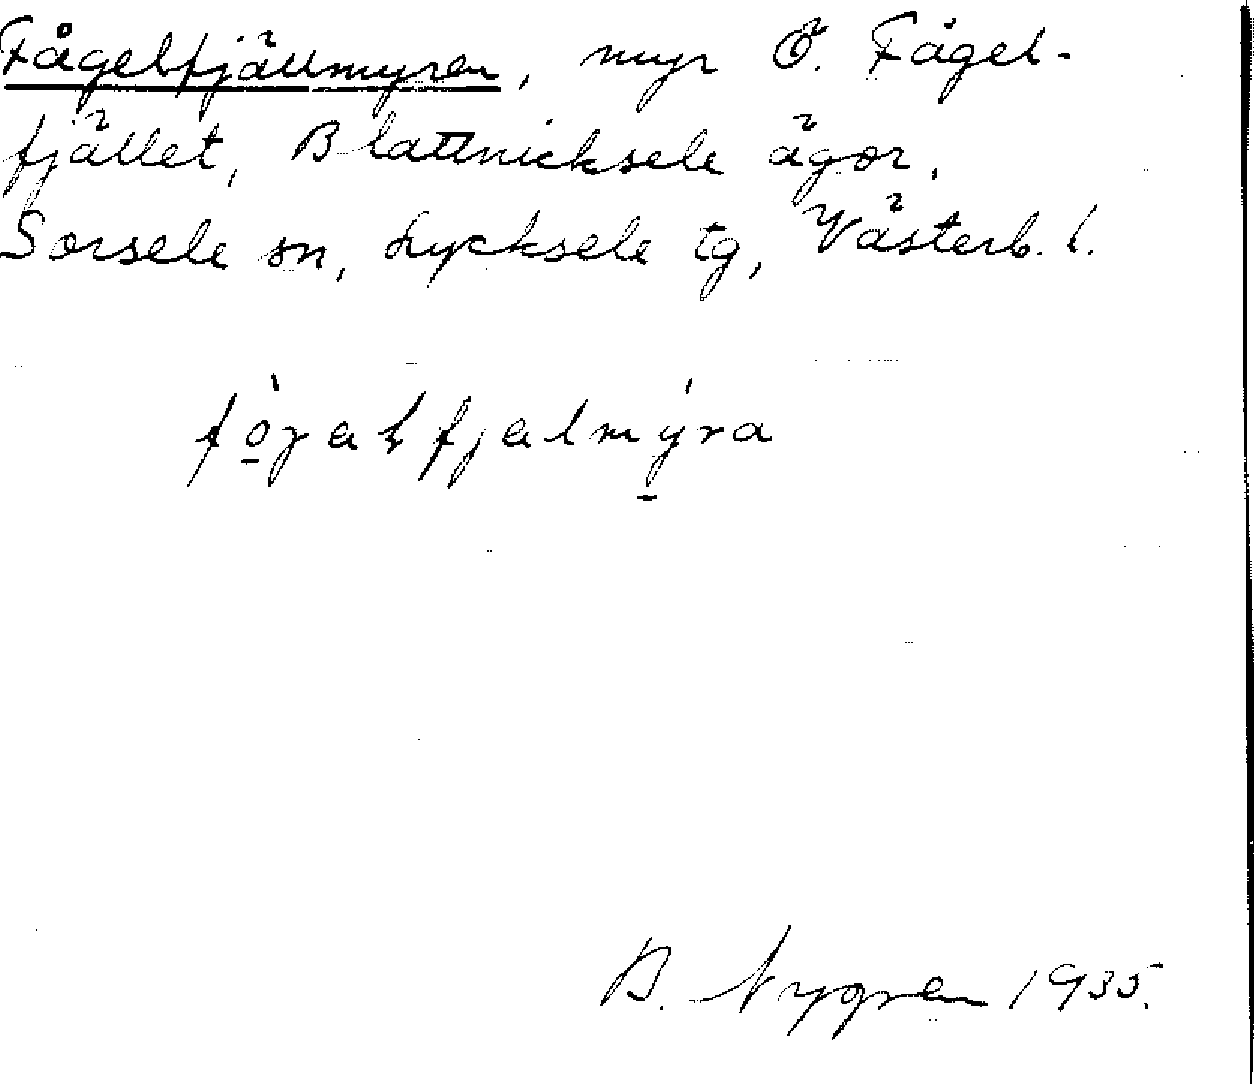 Fågelfjällmyren, myr Ö. Fågel-
fjället, Blattnicksele ägor,
Sorsele sn, Lycksele tg, Västerb. l.
B. Nygren 1935.